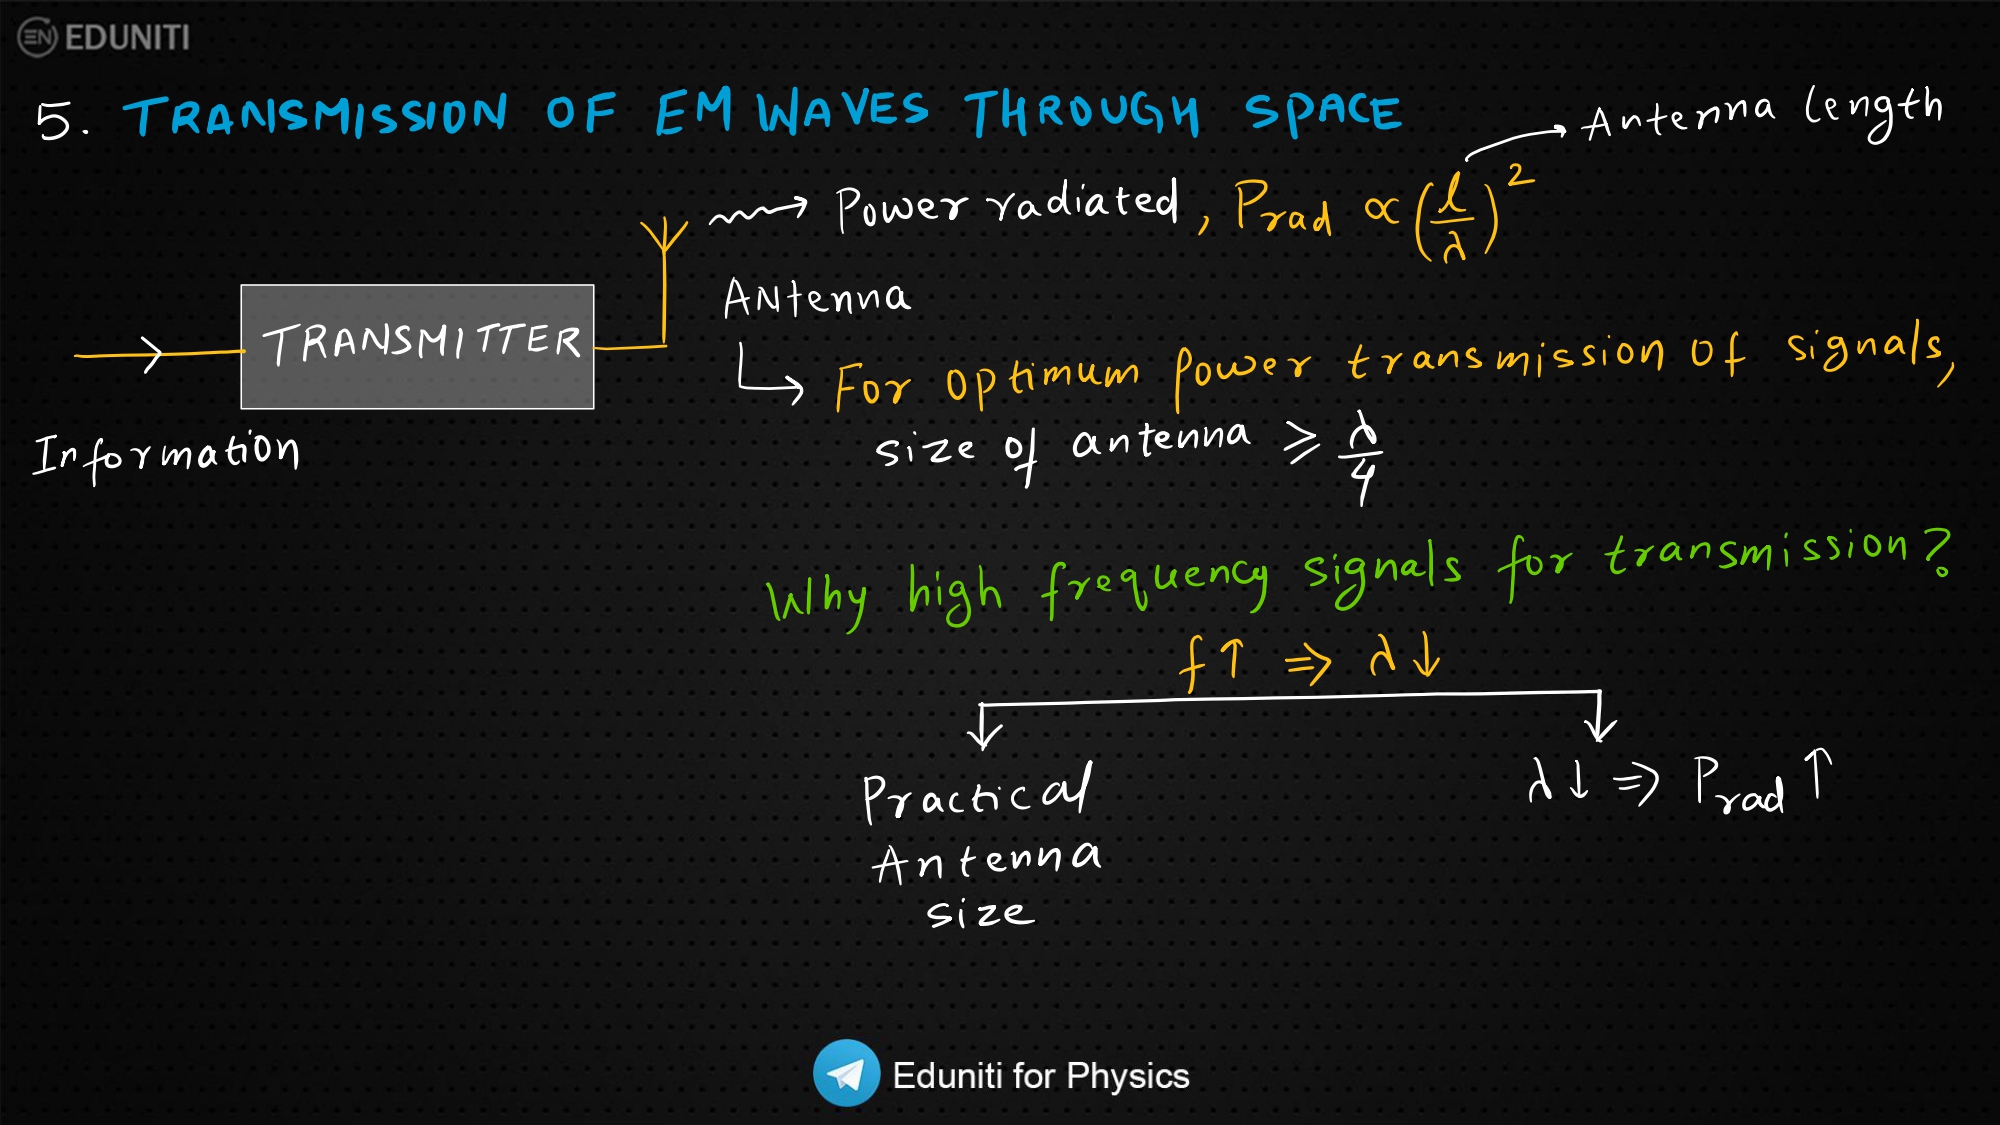 EN EDUNITI
5. TRANSMISSION OF EM WAVES THROUGH SPACE
Antenna length
Power radiated, Prad ∝ (l/λ)²
Antenna
TRANSMITTER
Information
For optimum power transmission of signals,
size of antenna ⩾ λ/4
Why high frequency signals for transmission?
f↑ ⇒ λ↓
Practical
Antenna
size
λ↓ ⇒ Prad ↑
Eduniti for Physics